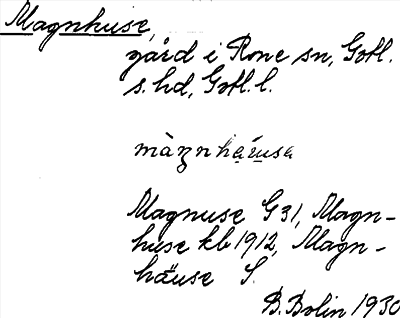 Magnhuse,
gård i Rone sn, Gotl.
s. hd, Gotl. l.
Magnuse G31, Magn-
huse kb 1912, Magn-
häuse S.
B. Bolin 1930